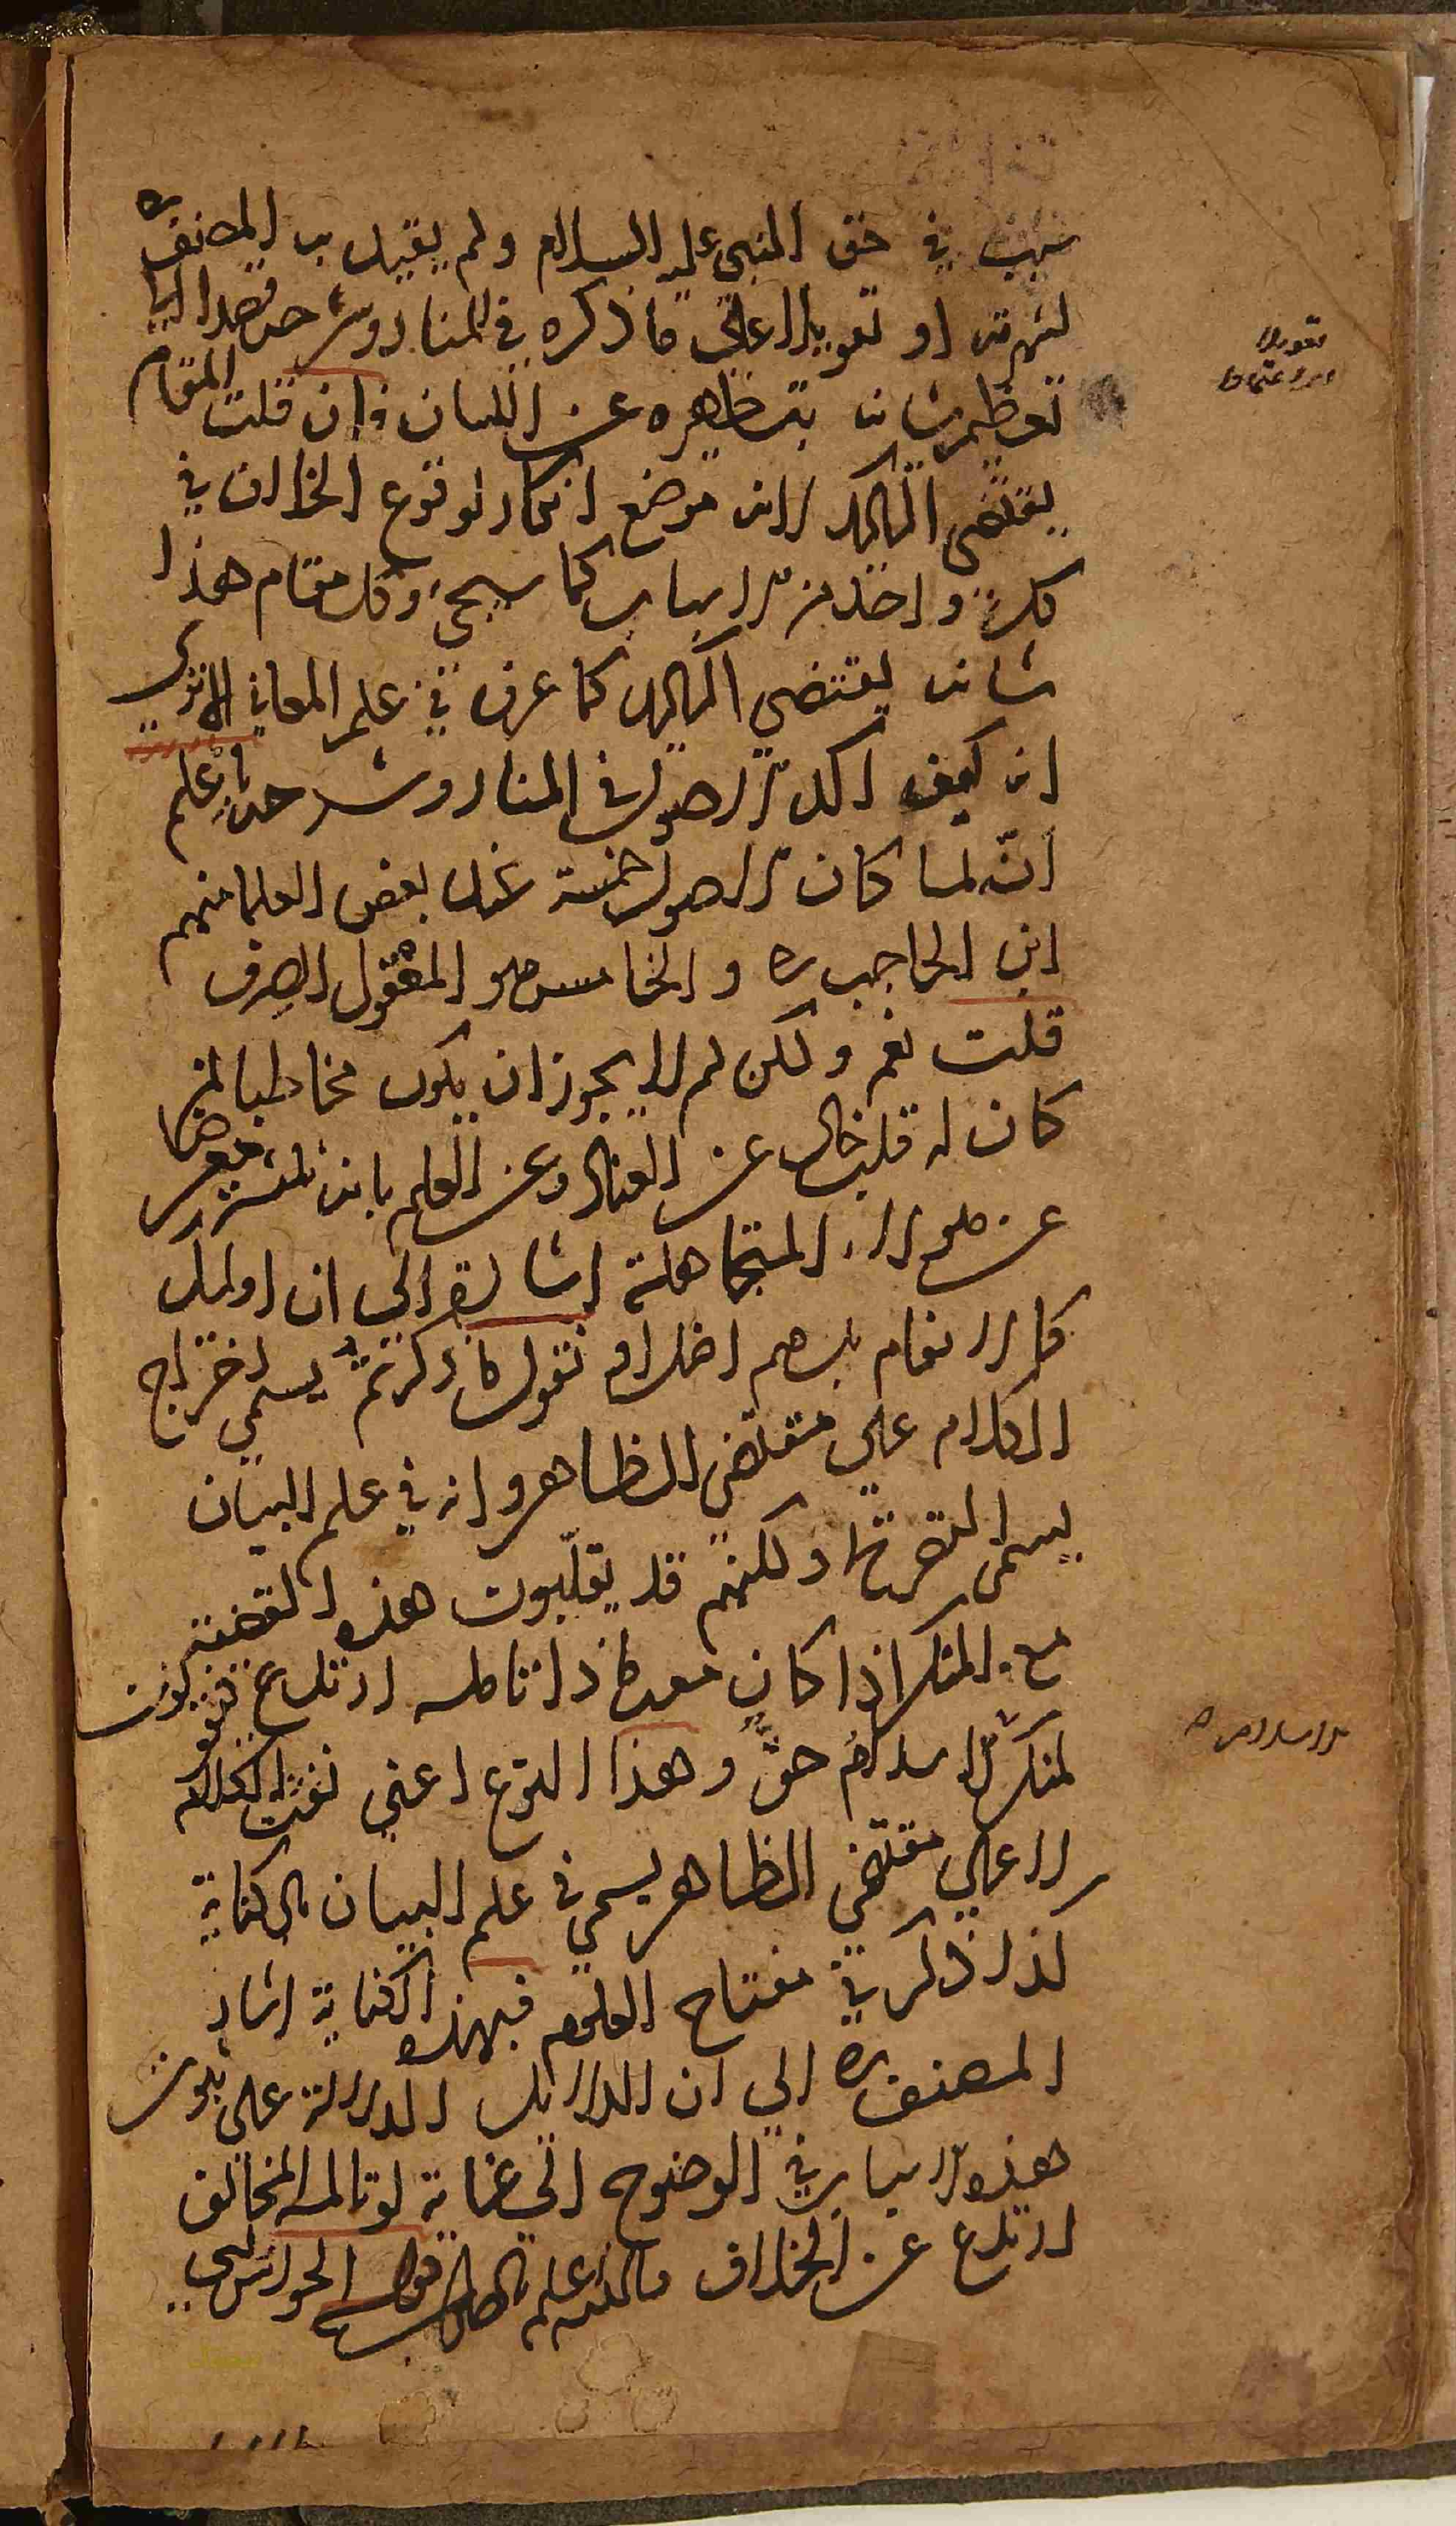 في حق النبي عليه السلام ولم يقيد به المصنف ره
لشهرته او تعويلا على ما ذكره في المنار وشرحه قصدا الى
تعظيم شانه بتطهيره عن اللسان فان قلت المقام
يقتضي التاكيد لانه موضع انكار لوقوع الخلاف في
كل واحد من الاسباب كما سيجئ وكل مقام هذا
شانه يقتضي التاكيد كما عرف في علم المعاني الا ترى
انه كيف اكد الاصول في المنار وشرحه بان علم
انه لما كان الاصول خمسة عند بعض العلما منهم
ابن الحاجب ره والخامس هو المعقول الصرف
قلت نعم ولكن لم لا يجوز ان يكون مخاطبا لمن
كان له قلب خال عن العناد وعن العلم بانه معرضا
عن هولاء المتجاهلة اشارة الى ان اولئك
كالانعام بل هم اضل او نقول ما ذكرتم يسمى اخراج
الكلام على مقتضى الظاهر وانه في علم البيان
يسمى التصريح ولكنهم قد يقلبون هذه القضية
مع المنكر اذا كان معه ما اذا تامله ارتدع فيقولون
لمنكر الاسلام الاسلام حق وهذا النوع اعني نفث الكلام
لا على مقتضى الظاهر يسمى في علم البيان بالكناية
كذا ذكر في مفتاح العلوم فبهذه الكناية اشار
المصنف ره الى ان الدلائل الدالة على ثبوت
هذه الاسباب في الوضوح الى غاية لو تامله المخالف
ارتدع عن الخلاف والله اعلم بالصواب قوله
تعويلا
اي اعتمادا
الاسلام